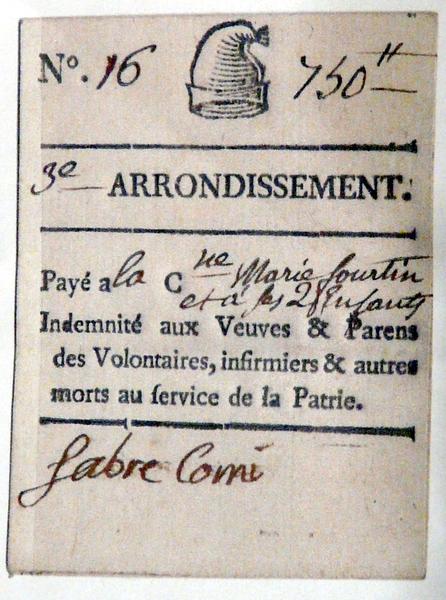 Nº. 16 750 ₶
3e ARRONDISSEMENT.
Payé a la C ne Marie Courtin
et à ses 2 Enfants
Indemnité aux Veuves & Parens
des Volontaires, infirmiers & autres
morts au ſervice de la Patrie.
Fabre Comi